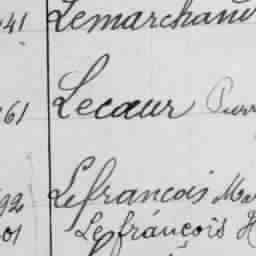 41 Lemarchand
61 Lecœur Pierr
92 Lefrancois Ma
01 Lefránçois H